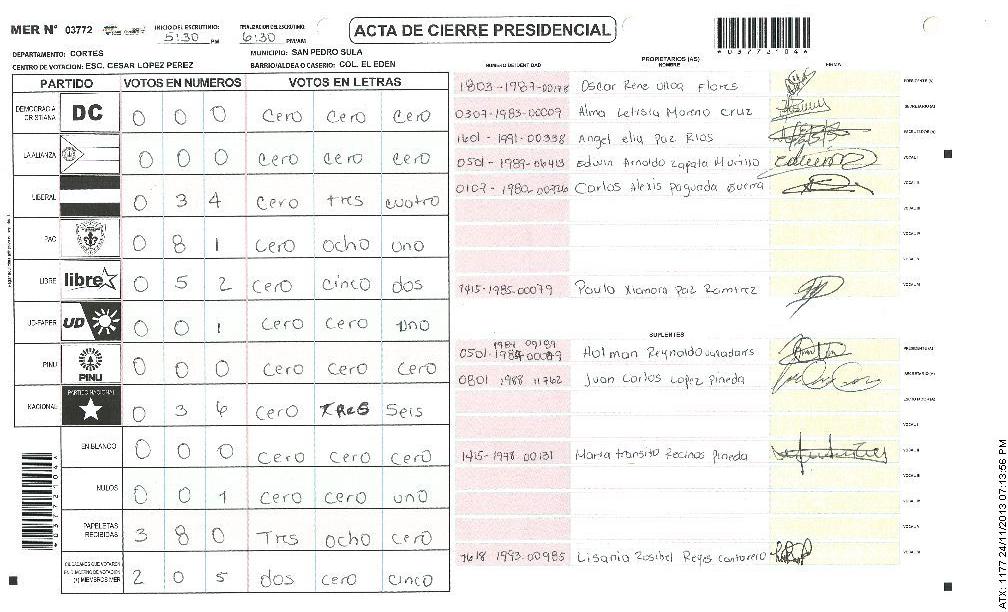 MER Nº 03772
INICIO DEL ESCRUTINIO: 5:30 PM
FINALIZACION DEL ESCRUTINIO: 6:30 PM/AM
ACTA DE CIERRE PRESIDENCIAL
*03772104*
DEPARTAMENTO: CORTES
MUNICIPIO: SAN PEDRO SULA
CENTRO DE VOTACION: ESC. CESAR LOPEZ PEREZ
BARRIO/ALDEA O CASERIO: COL. EL EDEN
PARTIDO VOTOS EN NUMEROS VOTOS EN LETRAS
DEMOCRACIA CRISTIANA DC 0 0 0 Cero Cero Cero
LA ALIANZA 0 0 0 Cero Cero Cero
LIBERAL 0 3 4 Cero tres cuatro
PAC 0 8 1 Cero ocho uno
LIBRE libre 0 5 2 Cero cinco dos
UD-FAPER UD 0 0 1 Cero Cero uno
PINU PINU 0 0 0 Cero Cero Cero
NACIONAL PARTIDO NACIONAL 0 3 6 Cero TReS Seis
EN BLANCO 0 0 0 Cero Cero Cero
NULOS 0 0 1 Cero Cero uno
PAPELETAS RECIBIDAS 3 8 0 Tres ocho cero
2 0 5 dos cero cinco
*03772104*
PROPIETARIOS (AS)
NUMERO DE IDENTIDAD NOMBRE FIRMA
1803-1987-00178 Oscar Rene Ulloa Flores
0307-1983-00009 Alma Letisia Moreno Cruz
1601-1991-00338 Angel elia Paz Rios
0501-1989-06413 Edwin Arnoldo Zapata Murillo
0107-1980-00726 Carlos Alexis Pagunda Guerra
1415-1985-00079 Paulo Xiomara Paz Ramirez
SUPLENTES
1984 09189
0501- Holman Reynaldo
0801 1988 11762 Juan Carlos Lopez Pineda
1415-1978-00131 Maria transito Recinos Pineda
1618-1993-00985 Lisania Rosibel Reyes Cantarero
ATX: 1177 24/11/2013 07:13:56 PM